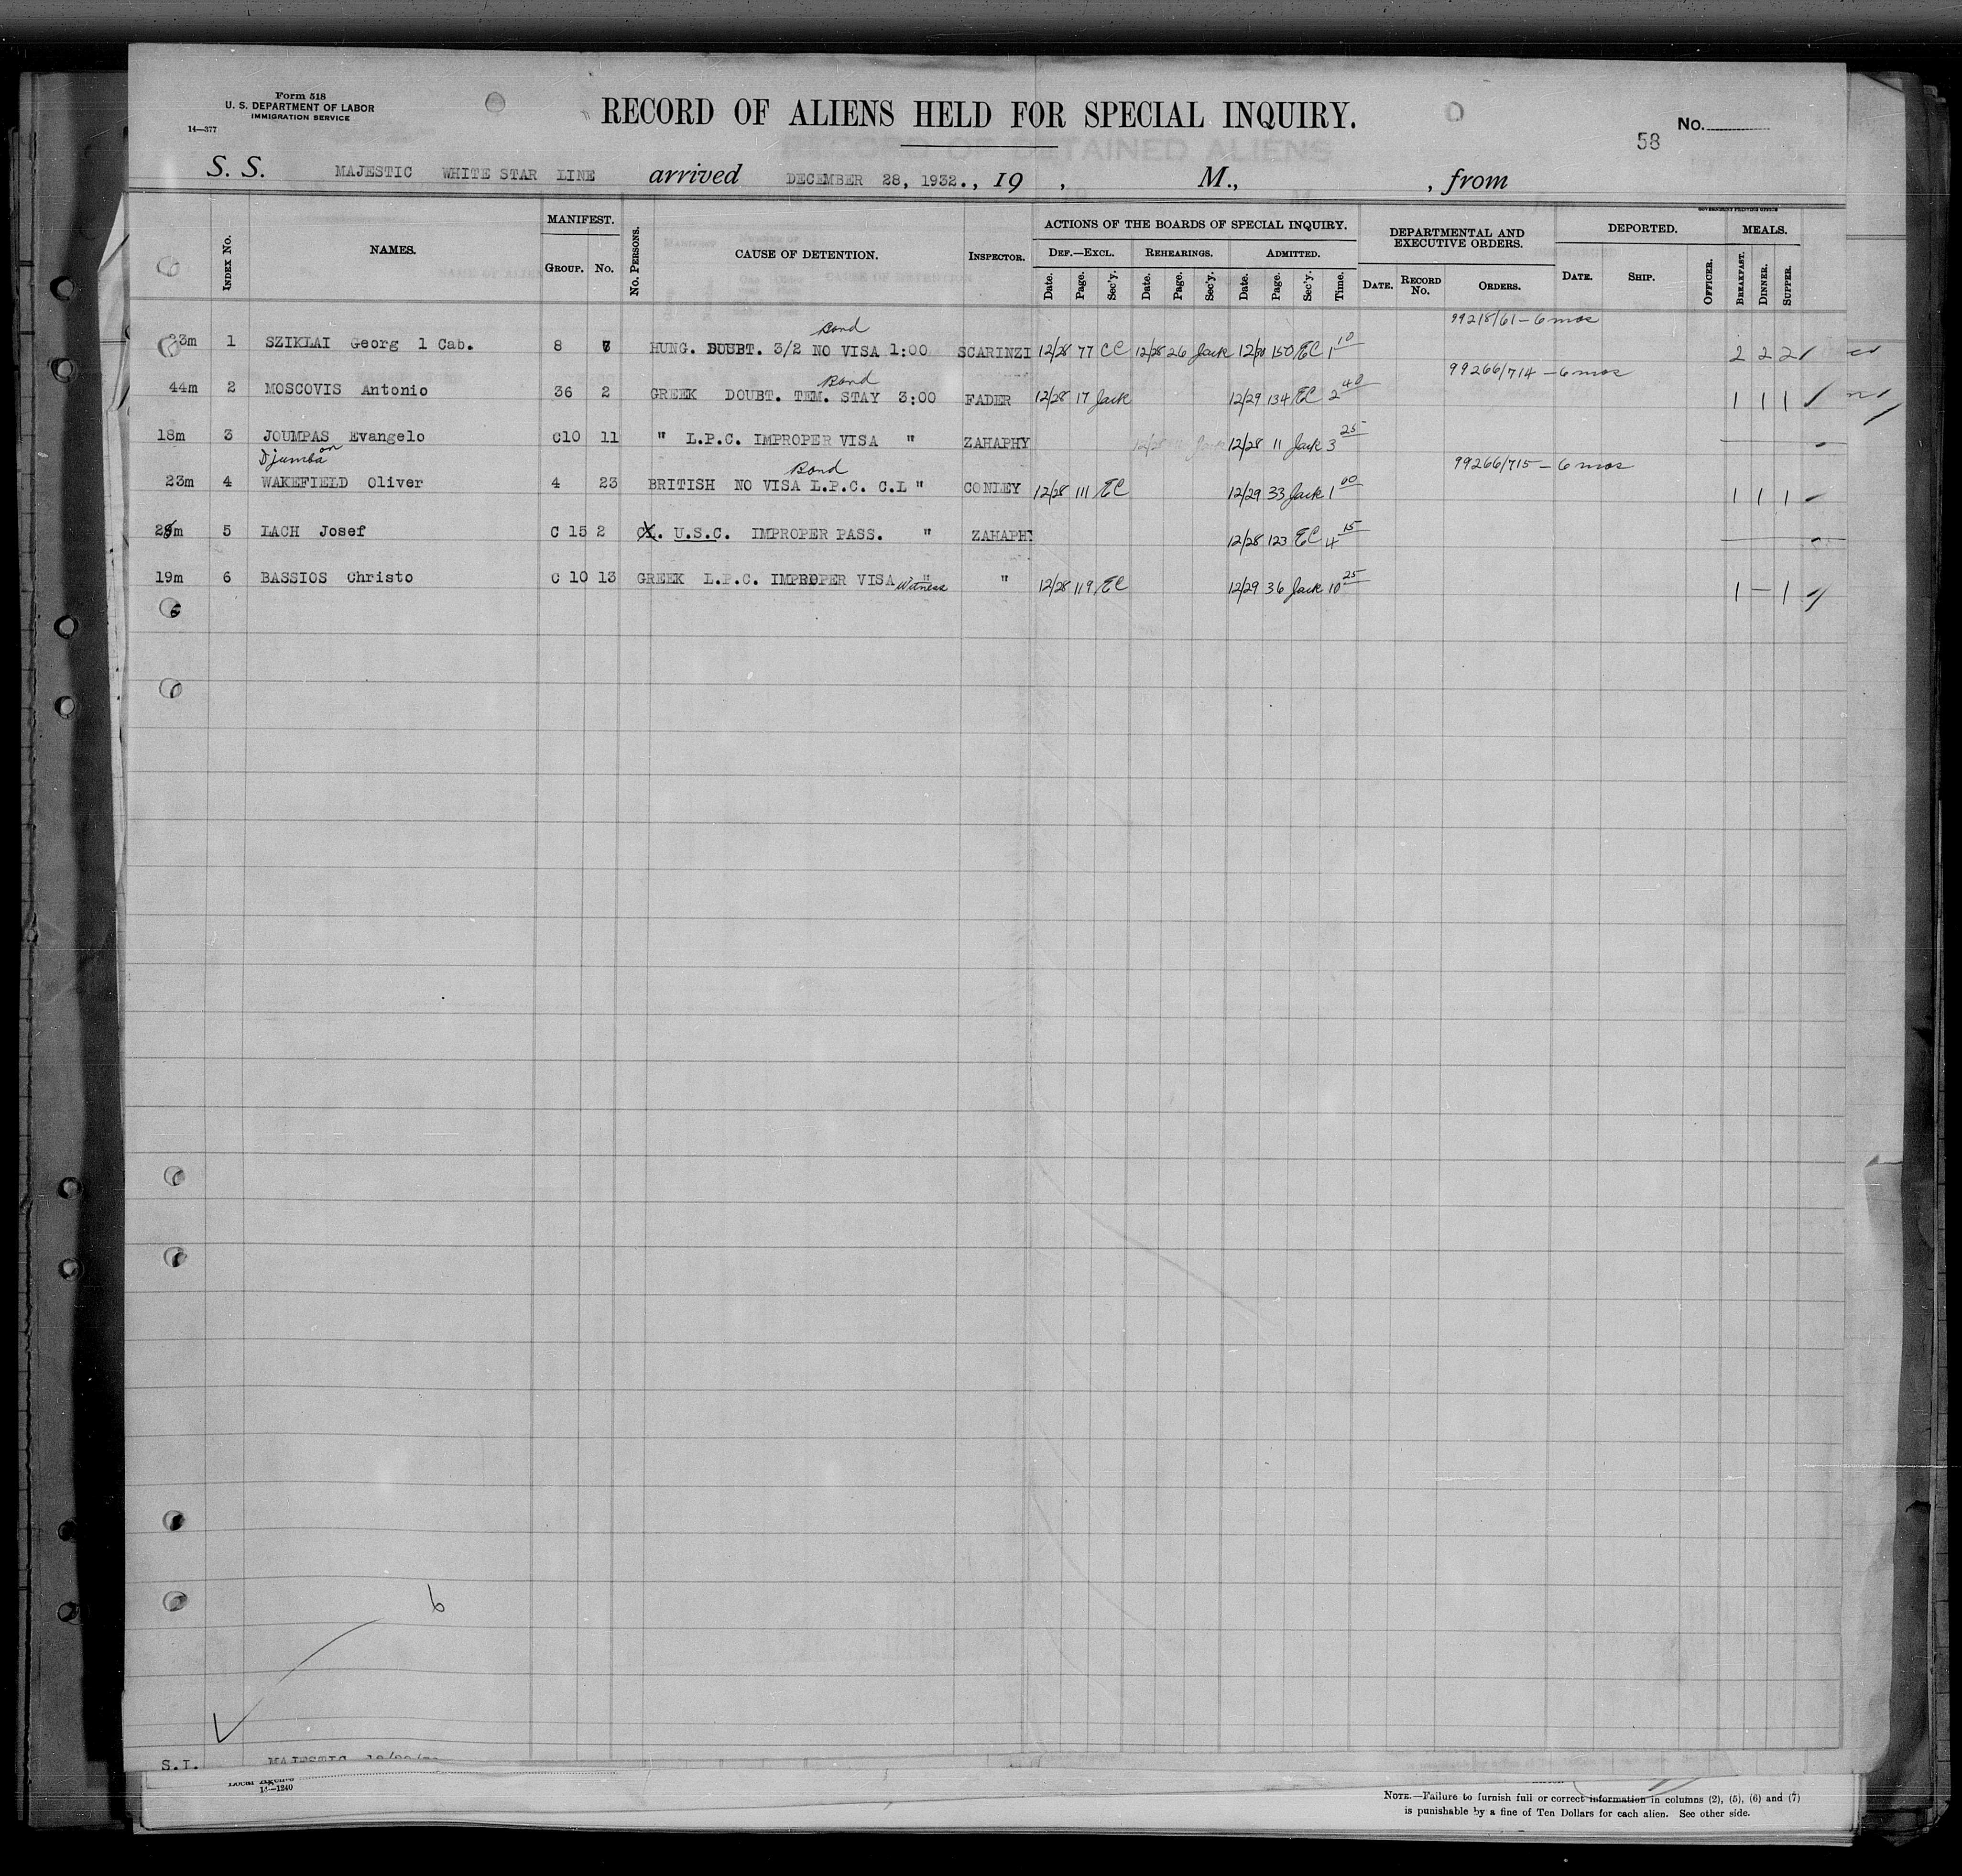 Form 518
U. S. DEPARTMENT OF LABOR
IMMIGRATION SERVICE
14—377
RECORD OF ALIENS HELD FOR SPECIAL INQUIRY.
No.
58
S. S. MAJESTIC WHITE STAR LINE arrived DECEMBER 28, 1932., 19 , M., , from
GOVERNMENT PRINTING OFFICE
Index No. NAMES. MANIFEST. Group. No. No. Persons. CAUSE OF DETENTION. Inspector. ACTIONS OF THE BOARDS OF SPECIAL INQUIRY. DEPARTMENTAL AND EXECUTIVE ORDERS. DEPORTED. MEALS.
Def.—Excl. Rehearings. Admitted.
Date. Page. Sec'y. Date. Page. Sec'y. Date. Page. Sec'y. Time. Date. Record No. Orders. Date. Ship. Officer. Breakfast. Dinner. Supper.
Bond 99218/61 – 6 mos
23m 1 SZIKLAI Georg 1 Cab. 8 HUNG. DOUBT. 3/2 NO VISA 1:00 SCARINZI 12/28 77 CC 12/28 26 Jack 12/30 150 EC 1 10 2 2 2
Bond 99266/714 – 6 mos
44m 2 MOSCOVIS Antonio 36 2 GREEK DOUBT. TEM. STAY 3:00 FADER 12/28 17 Jack 12/29 134 EC 2 40 1 1 1
18m 3 JOUMPAS Evangelo C10 11 " L.P.C. IMPROPER VISA " ZAHAPHY 12/28 11 Jack 3 25
or Djumba
Bond 99266/715 – 6 mos
23m 4 WAKEFIELD Oliver 4 23 BRITISH NO VISA L.P.C. C.L " CONLEY 12/28 111 EC 12/29 33 Jack 1 00 1 1 1
5 LACH Josef C 15 2 U.S.C. IMPROPER PASS. " ZAHAPH 12/28 123 EC 4 15
19m 6 BASSIOS Christo C 10 13 GREEK L.P.C. IMPROPER VISA " Witness " 12/28 119 EC 12/29 36 Jack 10 25 1 — 1
6
6
S.I. MAJESTIC
14—1240
Note.—Failure to furnish full or correct information in columns (2), (5), (6) and (7)
is punishable by a fine of Ten Dollars for each alien. See other side.